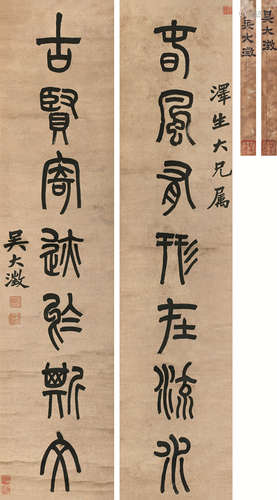 澤生大兄属
春風有形在流水
古賢寄迹於斯文
吳大澂
吳大澂
吳大澂